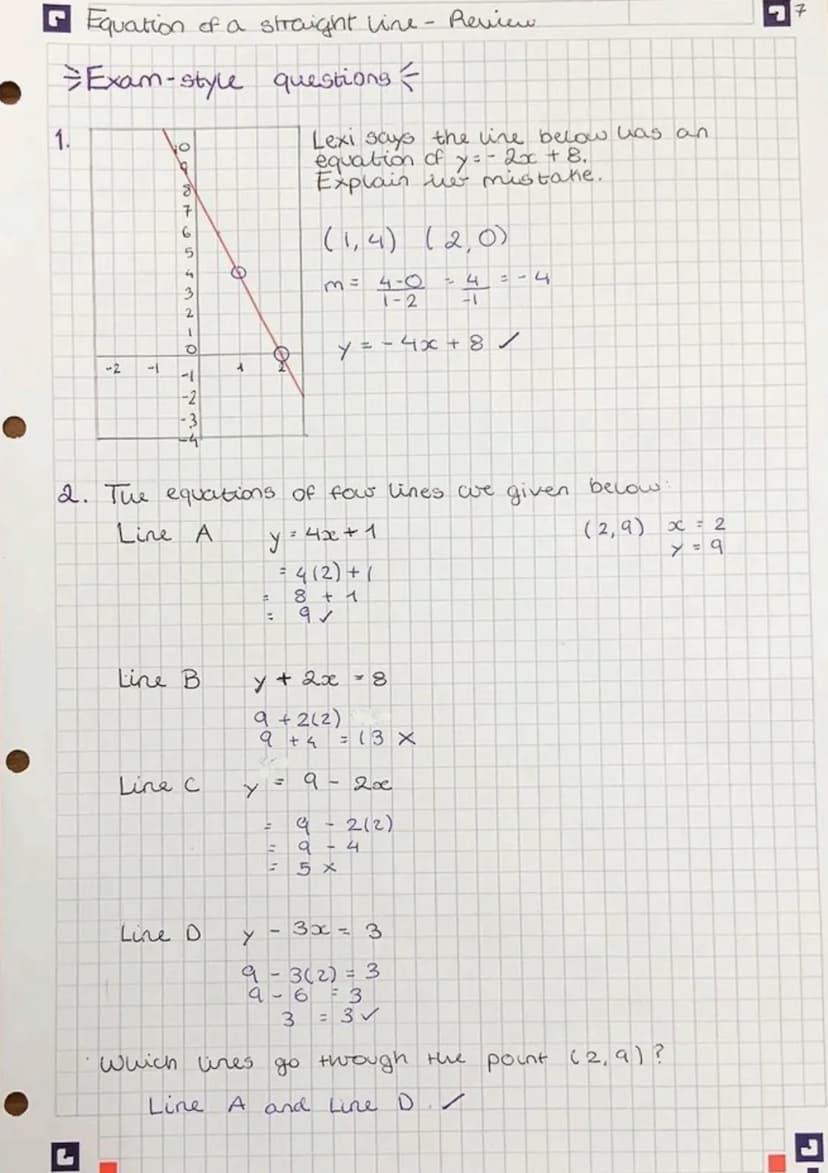 Equation of a straight line - Review
7
Exam-style questions
1.
Lexi says the line below has an
equation of y = - 2x + 8.
Explain her mistake.
10
9
8
7
6
5
4
3
2
1
0
-2 -1 1 2
-1
-2
-3
-4
(1,4) (2,0)
m = 4-0/1-2 = 4/-1 = -4
y = - 4x + 8 ✓
2. The equations of four lines are given below:
Line A y = 4x + 1 (2,9) x = 2
y = 9
= 4(2) + 1
= 8 + 1
= 9 ✓
Line B y + 2x = 8
9 + 2(2)
9 + 4 = 13 ×
Line C y = 9 - 2x
= 9 - 2(2)
= 9 - 4
= 5 ×
Line D y - 3x = 3
9 - 3(2) = 3
9 - 6 = 3
3 = 3 ✓
Which lines go through the point (2,9)?
Line A and Line D. ✓